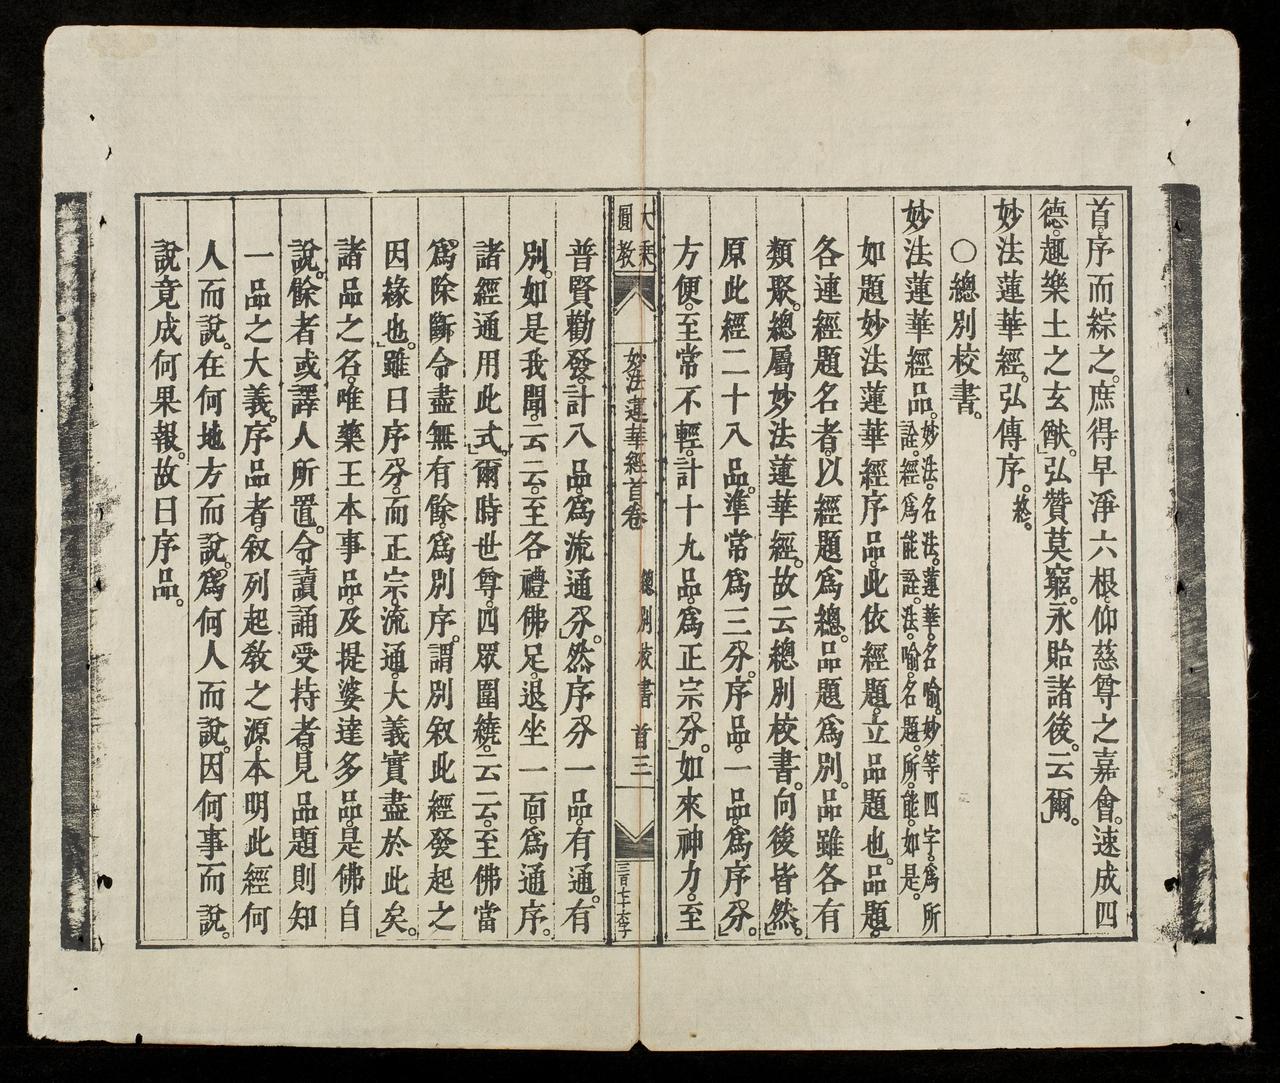 首。序而綜之。庶得早淨六根仰慈尊之嘉會。速成四
德。趣樂土之玄猷。弘贊莫窮。永貽諸後。云爾。
妙法蓮華經。弘傳序。終。
○總別校書。
妙法蓮華經品。妙法。名法。蓮華。名喻。妙等四字。為所
詮。經為能詮。法。喻。名題。所。能。如是。
如題妙法蓮華經序品。此依經題。立品題也。品題。
各連經題名者。以經題為總。品題為別。品雖各有
類聚。總屬妙法蓮華經。故云總別校書。向後皆然。
原此經二十八品。準常為三分。序品。一品。為序分。
方便。至常不輕。計十九品。為正宗分。如來神力。至
大乘
圓教
妙法蓮華經首卷
總別校書
首三
三百七十六字
普賢勸發。計八品。為流通分。然序分一品。有通。有
別。如是我聞。云云。至各禮佛足。退坐一面。為通序。
諸經通用此式。爾時世尊。四眾圍繞。云云。至佛當
為除斷令盡無有餘。為別序。謂別叙此經發起之
因緣也。雖曰序分。而正宗流通。大義實盡於此矣。
諸品之名。唯藥王本事品。及提婆達多品。是佛自
說。餘者或譯人所置。令讀誦受持者。見品題則知
一品之大義。序品者。叙列起教之源。本明此經何
人而說。在何地方而說。為何人而說。因何事而說。
說竟成何果報。故曰序品。